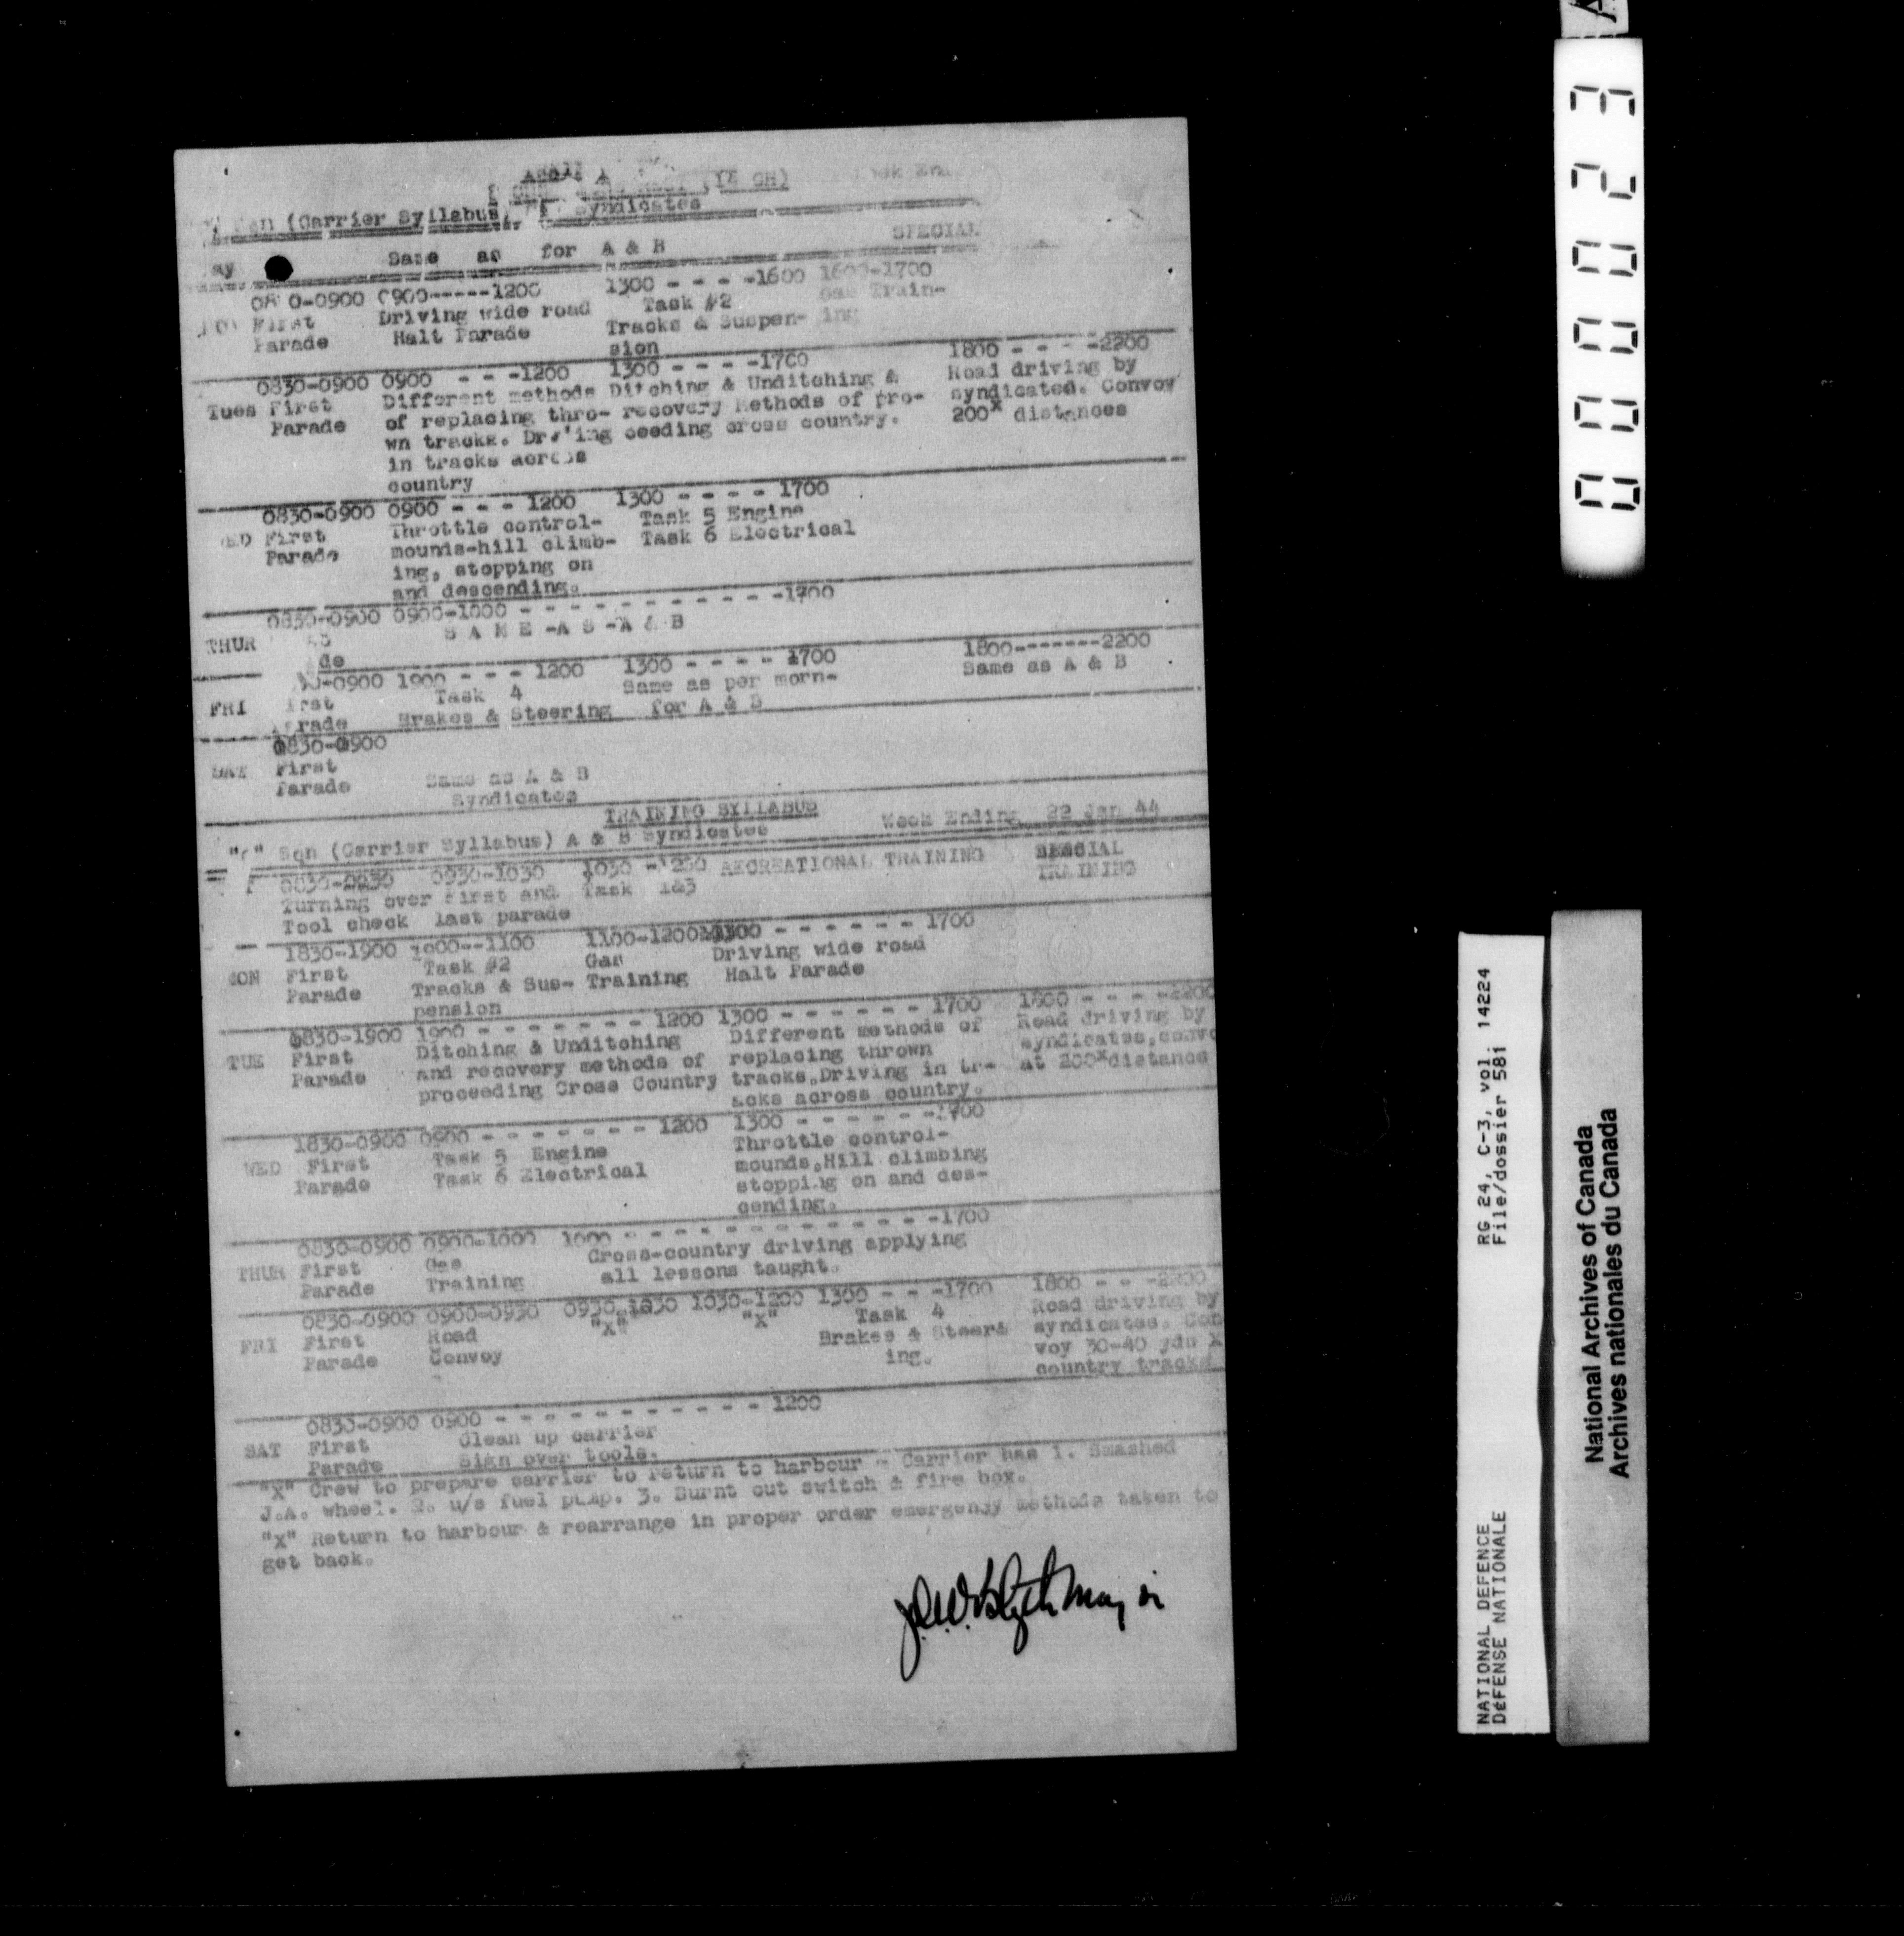 (14 CH)
Sqn (Carrier Syllabus) Syndicates
SPECIAL
Same as for A & B
0900-----1200 1300 - - - -1600 1600-1700
First Driving wide road Task #2 Gas Train-
Parade Halt Parade Tracks & Suspen- ing
sion
0830-0900 0900 - - -1200 1300 - - - -1700 1800 - - - -2200
Tues First Different methods Ditching & Unditching & Road driving by
Parade of replacing thro- recovery Methods of pro- syndicated. Convoy
wn tracks. Driving ceeding cross country. 200x distances
in tracks across
country
0830-0900 0900 - - - 1200 1300 - - - - 1700
First Throttle control- Task 5 Engine
Parade mounds-hill climb- Task 6 Electrical
ing, stopping on
and descending.
0830-0900 0900-1000 - - - - - - - - - - -1700
THUR S A M E -A S -A & B
1900 - - - 1200 1300 - - - - 1700 1800-------2200
FRI Task 4 Same as per morn- Same as A & B
Brakes & Steering for A & B
0830-0900
SAT First
Parade Same as A & B
Syndicates
TRAINING SYLLABUS
"C" Sqn (Carrier Syllabus) A & B Syndicates Week Ending 22 Jan 44
0830-0930 0930-1030 1030 -1200 RECREATIONAL TRAINING SPECIAL
Turning over First and Task 1&3 TRAINING
Tool check last parade
1830-1900 1900--1100 1100-1200 1300 - - - - - - 1700
MON First Task #2 Gas Driving wide road
Parade Tracks & Sus- Training Halt Parade
pension
0830-1900 1900 - - - - - - - 1200 1300 - - - - - - 1700 1800 - - - -2200
TUE First Ditching & Unditching Different methods of Road driving by
Parade and recovery methods of replacing thrown syndicates, convo
proceeding Cross Country tracks.Driving in tr- at 200x distance
acks across country.
1830-0900 0900 - - - - - - - 1200 1300 - - - - - -1700
WED First Task 5 Engine Throttle control-
Parade Task 6 Electrical mounds.Hill climbing
stopping on and des-
cending.
0830-0900 0900-1000 1000 - - - - - - - - - - - -1700
THUR First Gas Cross-country driving applying
Parade Training all lessons taught.
0830-0900 0900-0930 0930-1030 1030-1200 1300 - - -1700 1800 - - -2200
FRI First Road "X" "X" Task 4 Road driving by
Parade Convoy Brakes & Steer& syndicates. Con
ing. voy 30-40 yds X
country tracks
0830-0900 0900 - - - - - - - - - - - 1200
SAT First Clean up carrier
Parade Sign over tools.
"X" Crew to prepare carrier to return to harbour - Carrier has 1. Smashed
J.A. wheel. 2. u/s fuel pump. 3. Burnt out switch & fire box.
"X" Return to harbour & rearrange in proper order emergency methods taken to
get back.
00023
RG 24, C-3, vol. 14224
File/dossier 581
NATIONAL DEFENCE
DéFENSE NATIONALE
National Archives of Canada
Archives nationales du Canada